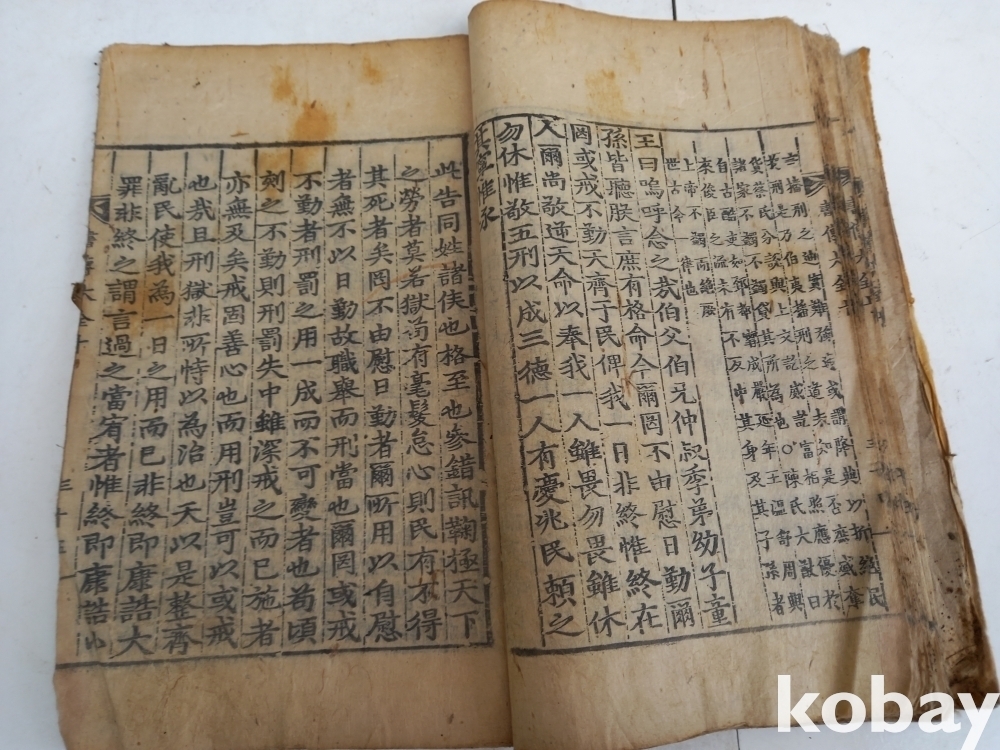 自古酷吏如郅都寗成嚴延年王温舒周興
來俊臣之流未有不反中其身及其子孫者
上帝不蠲而絕厥
世古今一律也
王曰嗚呼念之哉伯父伯兄仲叔季弟幼子童
孫皆聽朕言庶有格命今爾罔不由慰日勤爾
罔或戒不勤天齊于民俾我一日非終惟終在
人爾尚敬逆天命以奉我一人雖畏勿畏雖休
勿休惟敬五刑以成三德一人有慶兆民頼之
其寧惟永
此告同姓諸侯也格至也參錯訊鞠極天下
之勞者莫若獄苟有毫髮怠心則民有不得
其死者矣罔不由慰日勤者爾所用以自慰
者無不以日勤故職舉而刑當也爾罔或戒
不勤者刑罰之用一成而不可變者也苟頃
刻之不勤則刑罰失中雖深戒之而已施者
亦無及矣戒固善心也而用刑豈可以或戒
也哉且刑獄非所恃以為治也天以是整齊
亂民使我為一日之用而已非終即康誥大
罪非終之謂言過之當宥者惟終即康誥小
kobay